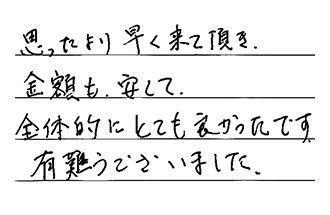 思ったより早く来て頂き.
金額も.安くて.
全体的にとても良かったです
有難うございました.